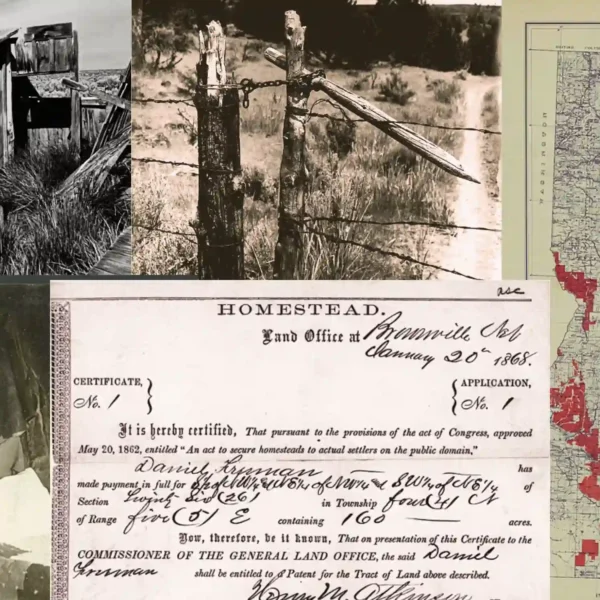 HOMESTEAD.
Land Office at Brownville Neb
January 20th 1868.
CERTIFICATE,
No. 1
APPLICATION,
No. 1
It is hereby certified, That pursuant to the provisions of the act of Congress, approved
May 20, 1862, entitled "An act to secure homesteads to actual settlers on the public domain,"
Daniel Freeman has
made payment in full for of NW¼ & SW¼ of NE¼ of
Section Twenty Six (26) in Township four (4) N
of Range five (5) E containing 160 acres.
Now, therefore, be it known, That on presentation of this Certificate to the
COMMISSIONER OF THE GENERAL LAND OFFICE, the said Daniel
Freeman shall be entitled to a Patent for the Tract of Land above described.
Henry M. Atkinson
WASHINGTON